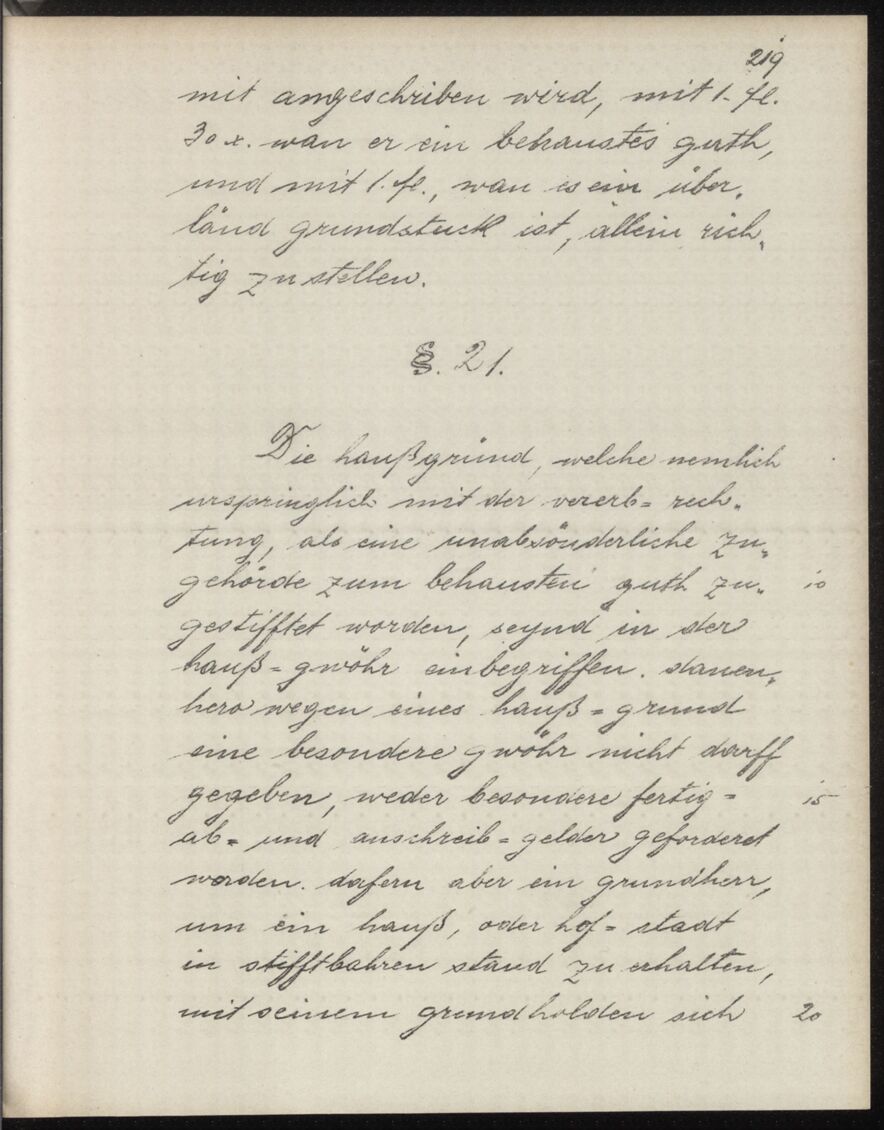 219
mit angeschriben wird, mit 1. fl.
30 x. wan er ein behaustes guth,
und mit 1. fl., wan es ein über„
länd grundstuck ist, allein rich„
tig zu stellen.
§. 21.
Die haußgründ, welche nemlich
urspringlich mit der vererb= rech„
tung, als eine unabsönderliche zu„
gehörde zum behausten guth zu„ 10
gestifftet worden, seynd in der
hauß=gwöhr einbegriffen. danen„
hero wegen eines hauß=grund
eine besondere gwöhr nicht darff
gegeben, weder besondere fertig= 15
ab= und anschreib=gelder geforderet
werden. dafern aber ein grundherr,
um ein hauß, oder hof=stadt
in stifftbahren stand zu erhalten,
mit seinem grundholden sich 20